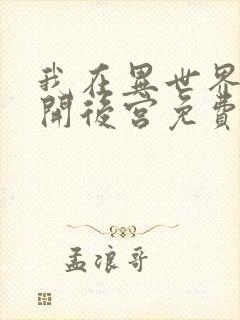 我在異世界
開後宮免費
孟浪哥